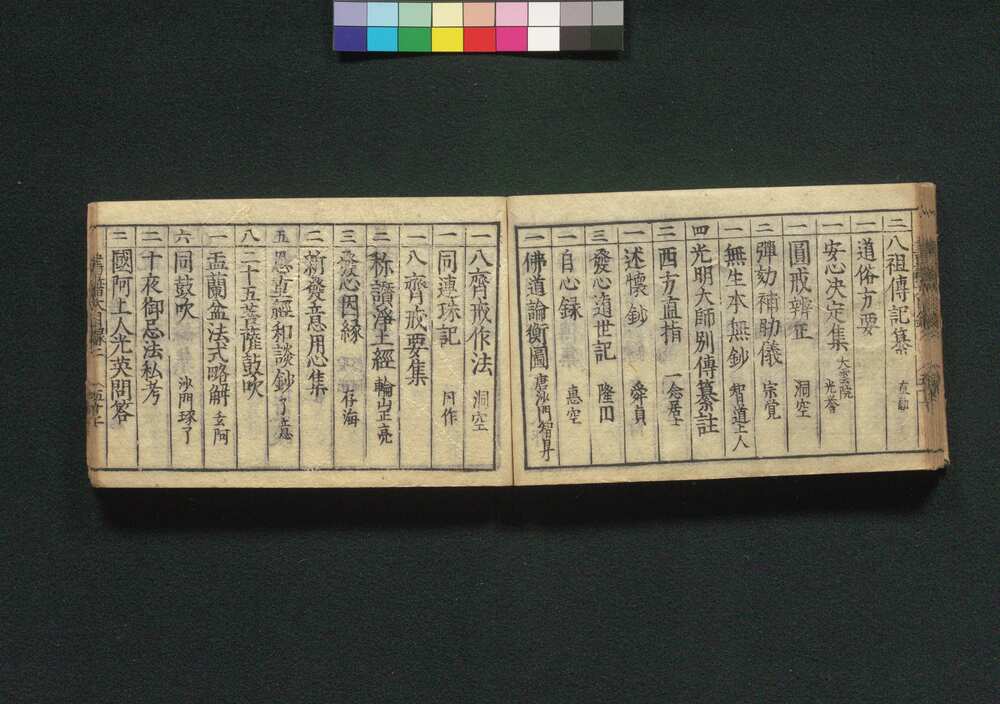 二 八祖傳記纂
二 道俗方要
一 安心决定集 大雲院 光譽
一 圓戒辨正 洞空
二 彈劾補助儀 宗覚
一 無生本無鈔 智道上人
四 光明大師別傳纂註
三 西方直指 一念居士
一 述懷鈔 舜貞
三 發心遁世記 隆田
一 自心録 惠空
一 佛道論衡圖 唐沙門智昇
一 八齊戒作法 洞空
一 同連珠記 同作
一 八齊戒要集
二 称讃淨土經 輪岩亮
三 發心因縁 存海
二 新發意用心集
五 恩重經和談鈔 了意
八 二十五菩薩鼓吹
一 盂蘭盆法式略解 玄阿
六 同鼓吹 沙門琢了
二 十夜御忌法私考
二 國阿上人光英問答